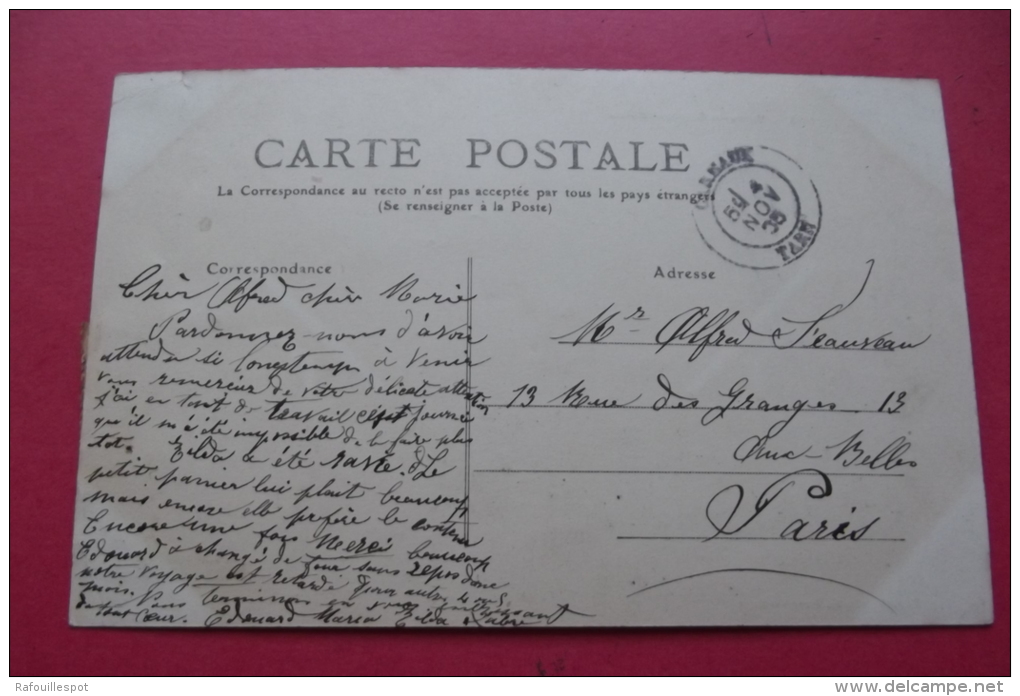 CARTE POSTALE
La Correspondance au recto n'est pas acceptée par tous les pays étrangers
(Se renseigner à la Poste)
CARMAUX
TARN
NOV
Correspondance
Adresse
Cher Alfred cher Marie
Pardonnez nous d'avoir
attendu si longtemps à venir
vous remercier de votre délicate attention
j'ai en tant de travail ces journée
qu'il m'a été impossible de le faire plus
tot. Zilda a été ravie. Le
petit panier lui plait beaucoup
mais encore elle préfère le contenu
Encore une fois Merci beaucoup
Edouard à changé de four sans repos donc
notre voyage est retardé pour autre
mois.
de tout cœur. Edouard Maria Zilda
Mr Alfred
13 Rue des Granges. 13
aux-Belles
Paris
Rafouillespot
www.delcampe.net